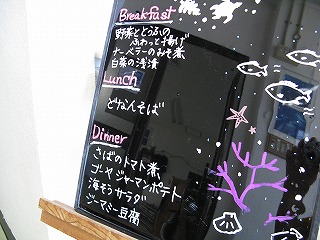 Breakfast
野菜ととうふの
ふわっと揚げ
ナーベラーのみそ煮
白菜の浅漬
Lunch
どねんそば
Dinner
さばのトマト煮
ゴーヤジャーマンポテト
海そうサラダ
ジーマミー豆腐